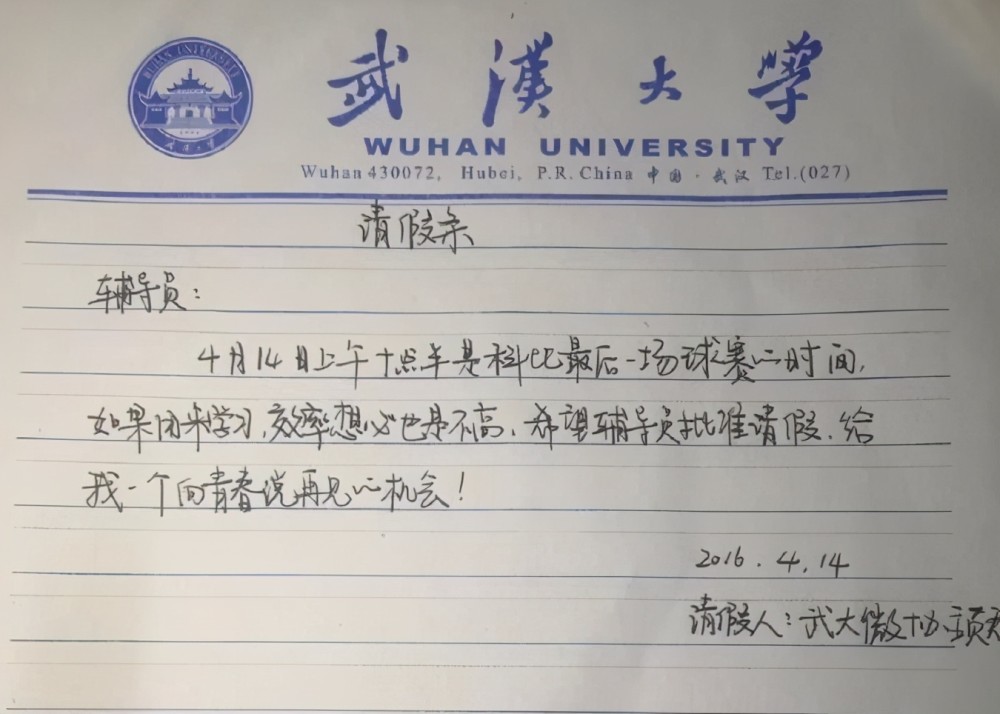 WUHAN UNIVERSITY
武漢大學
武漢大學
WUHAN UNIVERSITY
Wuhan 430072, Hubei, P.R. China 中国·武汉 Tel.(027)
请假条
辅导员：
4月14日上午十点半是科比最后一场球赛的时间，
如果用来学习，效率想必也是不高，希望辅导员批准请假，给
我一个向青春说再见的机会！
2016.4.14
请假人：武大微协